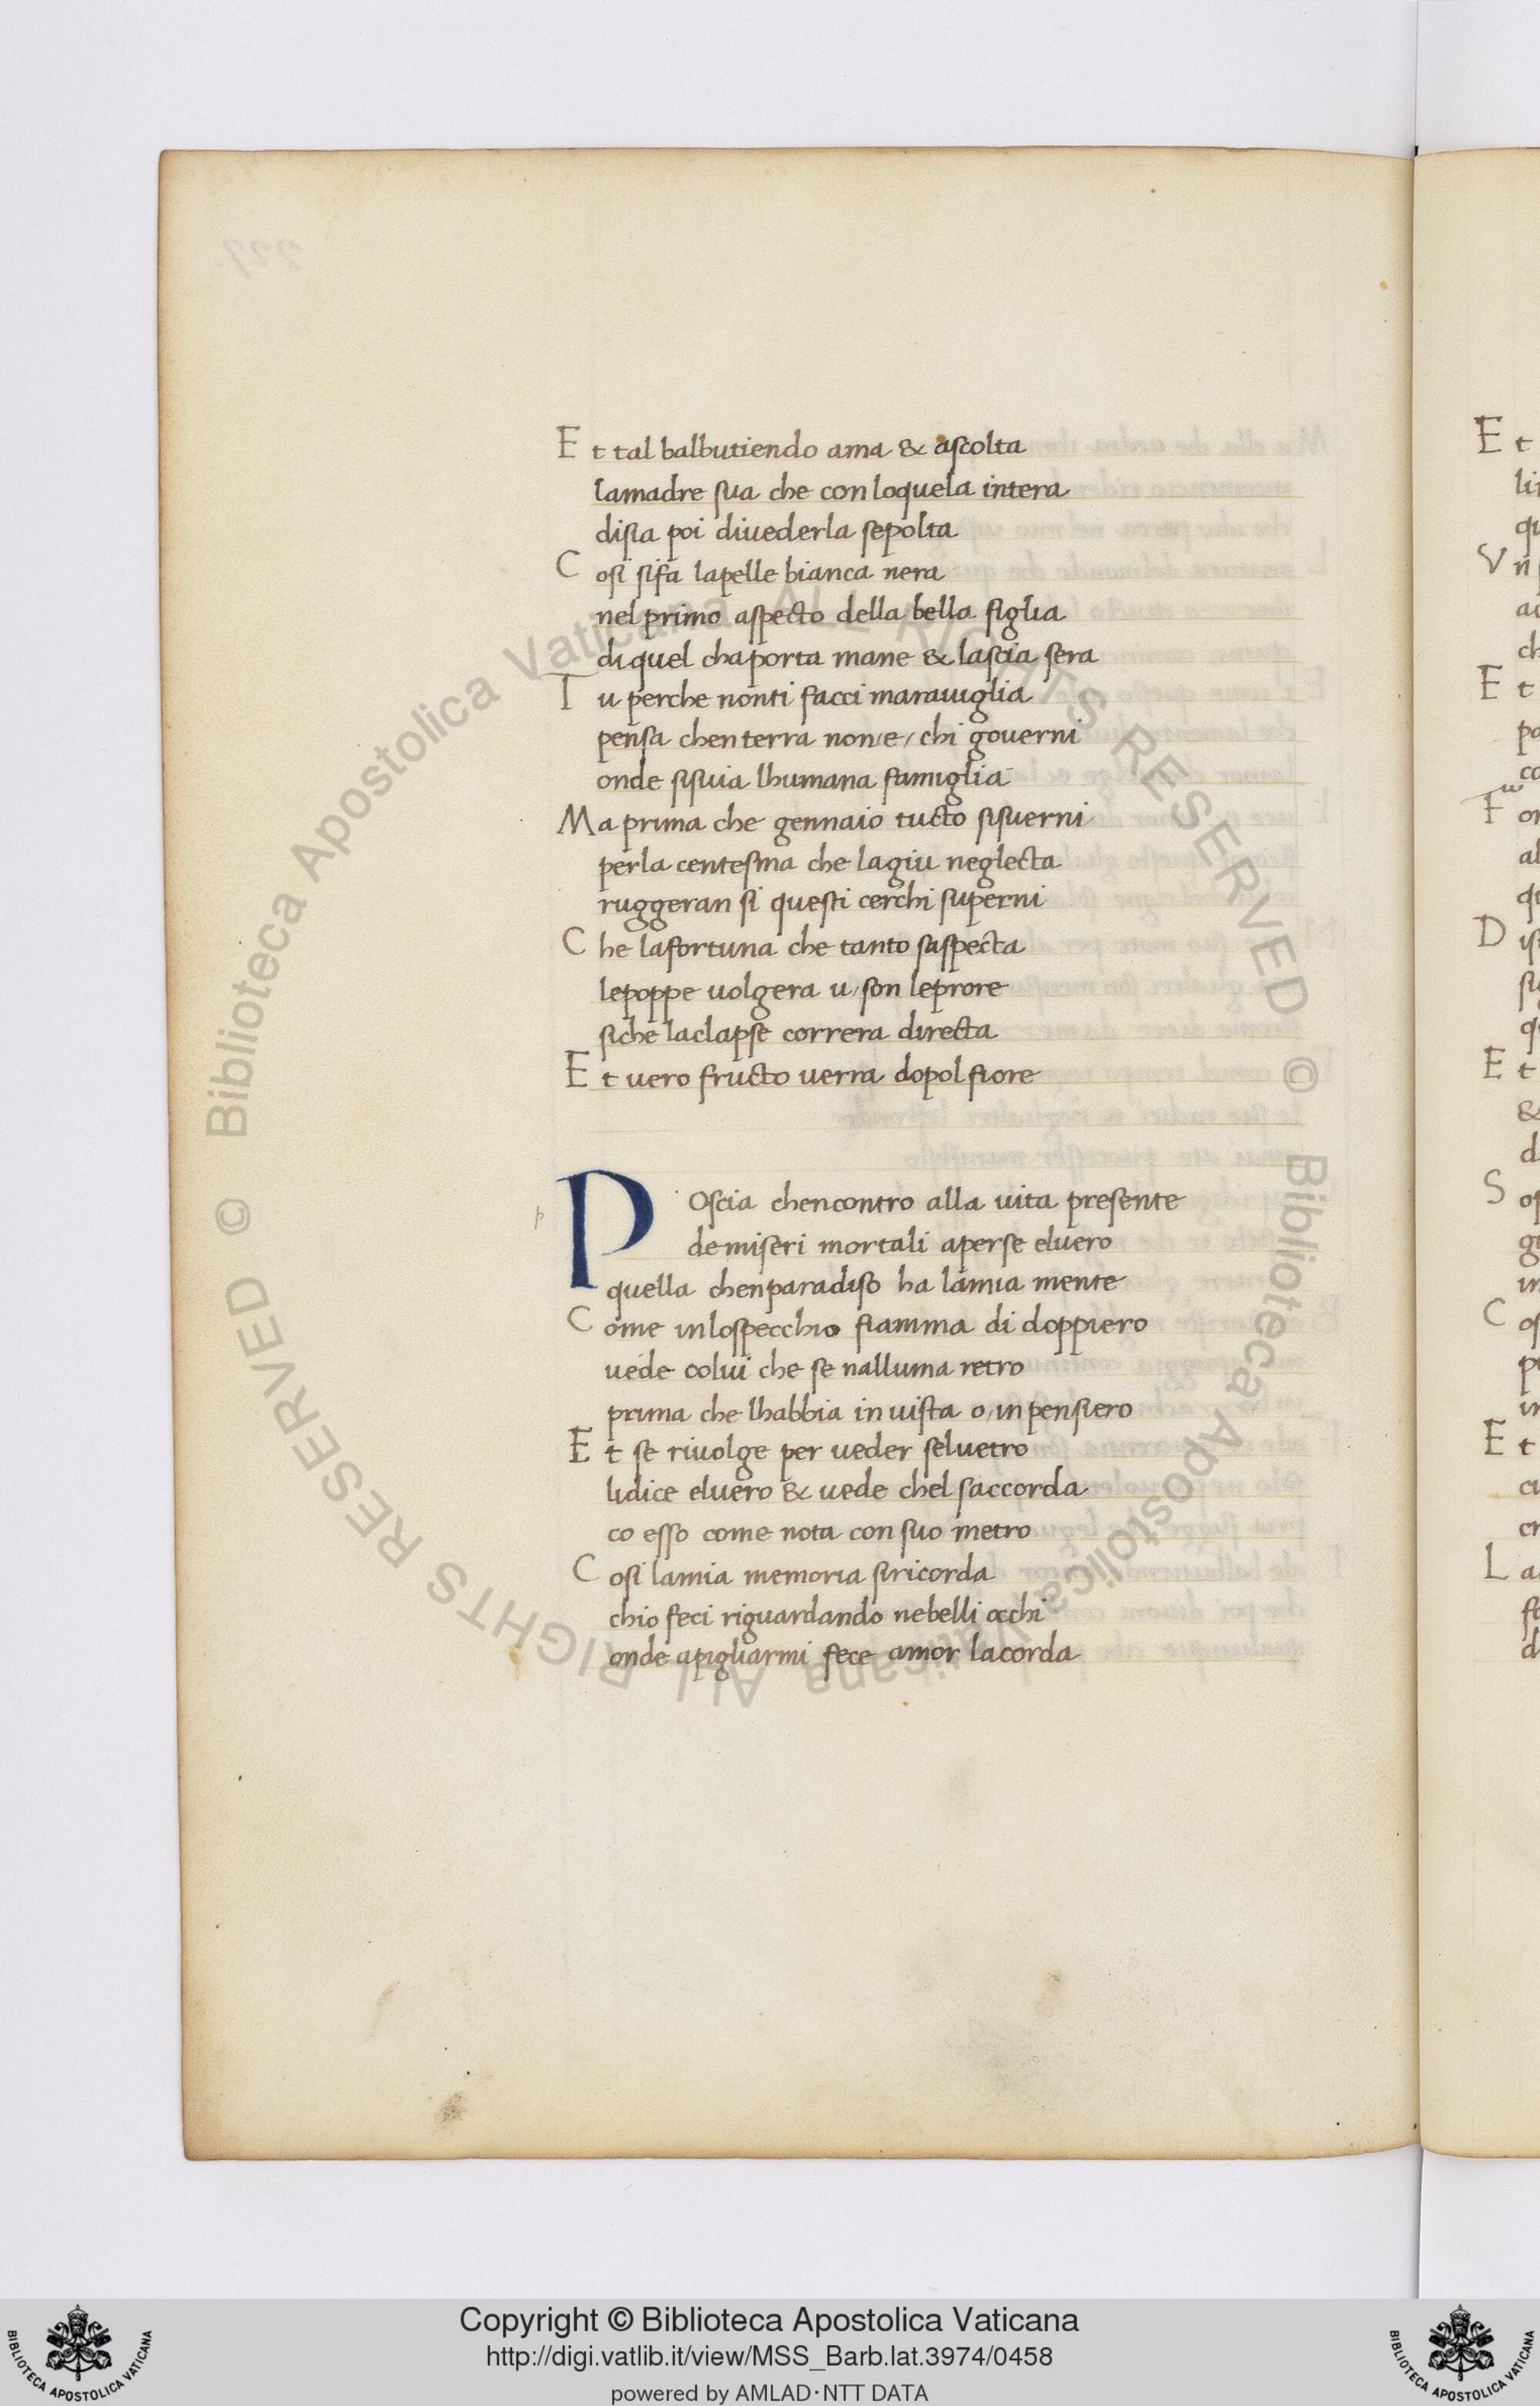 Et tal balbutiendo ama & ascolta
lamadre sua che con loquela intera
disia poi diuederla sepolta
Cosi sifa lapelle bianca nera
nel primo aspecto della bella figlia
di quel chaporta mane & lascia sera
Tu perche nonti facci marauiglia
pensa chen terra non/e/ chi gouerni
onde sisuia lhumana famiglia
Ma prima che gennaio tucto sisuerni
perla centesma che lagiu neglecta
ruggeran si questi cerchi superni
Che lafortuna che tanto saspecta
lepoppe uolgera u/son leprore
siche laclapse correra directa
Et uero fructo uerra dopol fiore
p
POscia chencontro alla uita presente
de miseri mortali aperse eluero
quella chenparadiso ha lamia mente
Come inlospecchio fiamma di doppiero
uede colui che se nalluma retro
prima che lhabbia in uista o/in pensiero
Et se riuolge per ueder seluetro
lidice eluero & uede chel saccorda
co esso come nota con suo metro
Cosi lamia memoria siricorda
chio feci riguardando nebelli occhi
onde apigliarmi fece amor lacorda
© Biblioteca Apostolica Vaticana ALL RIGHTS RESERVED © Biblioteca Apostolica Vaticana ALL RIGHTS RESERVED
Copyright © Biblioteca Apostolica Vaticana
http://digi.vatlib.it/view/MSS_Barb.lat.3974/0458
powered by AMLAD·NTT DATA
BIBLIOTECA APOSTOLICA VATICANA
BIBLIOTECA APOSTOLICA VATICANA